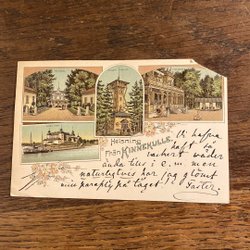 Helsning
Från KINNEKULLE.
Vi hafva
haft så
vackert wäder
ända tills i e. m. men
naturligtvis har jag glömt
min paraply på taget!
Faster.